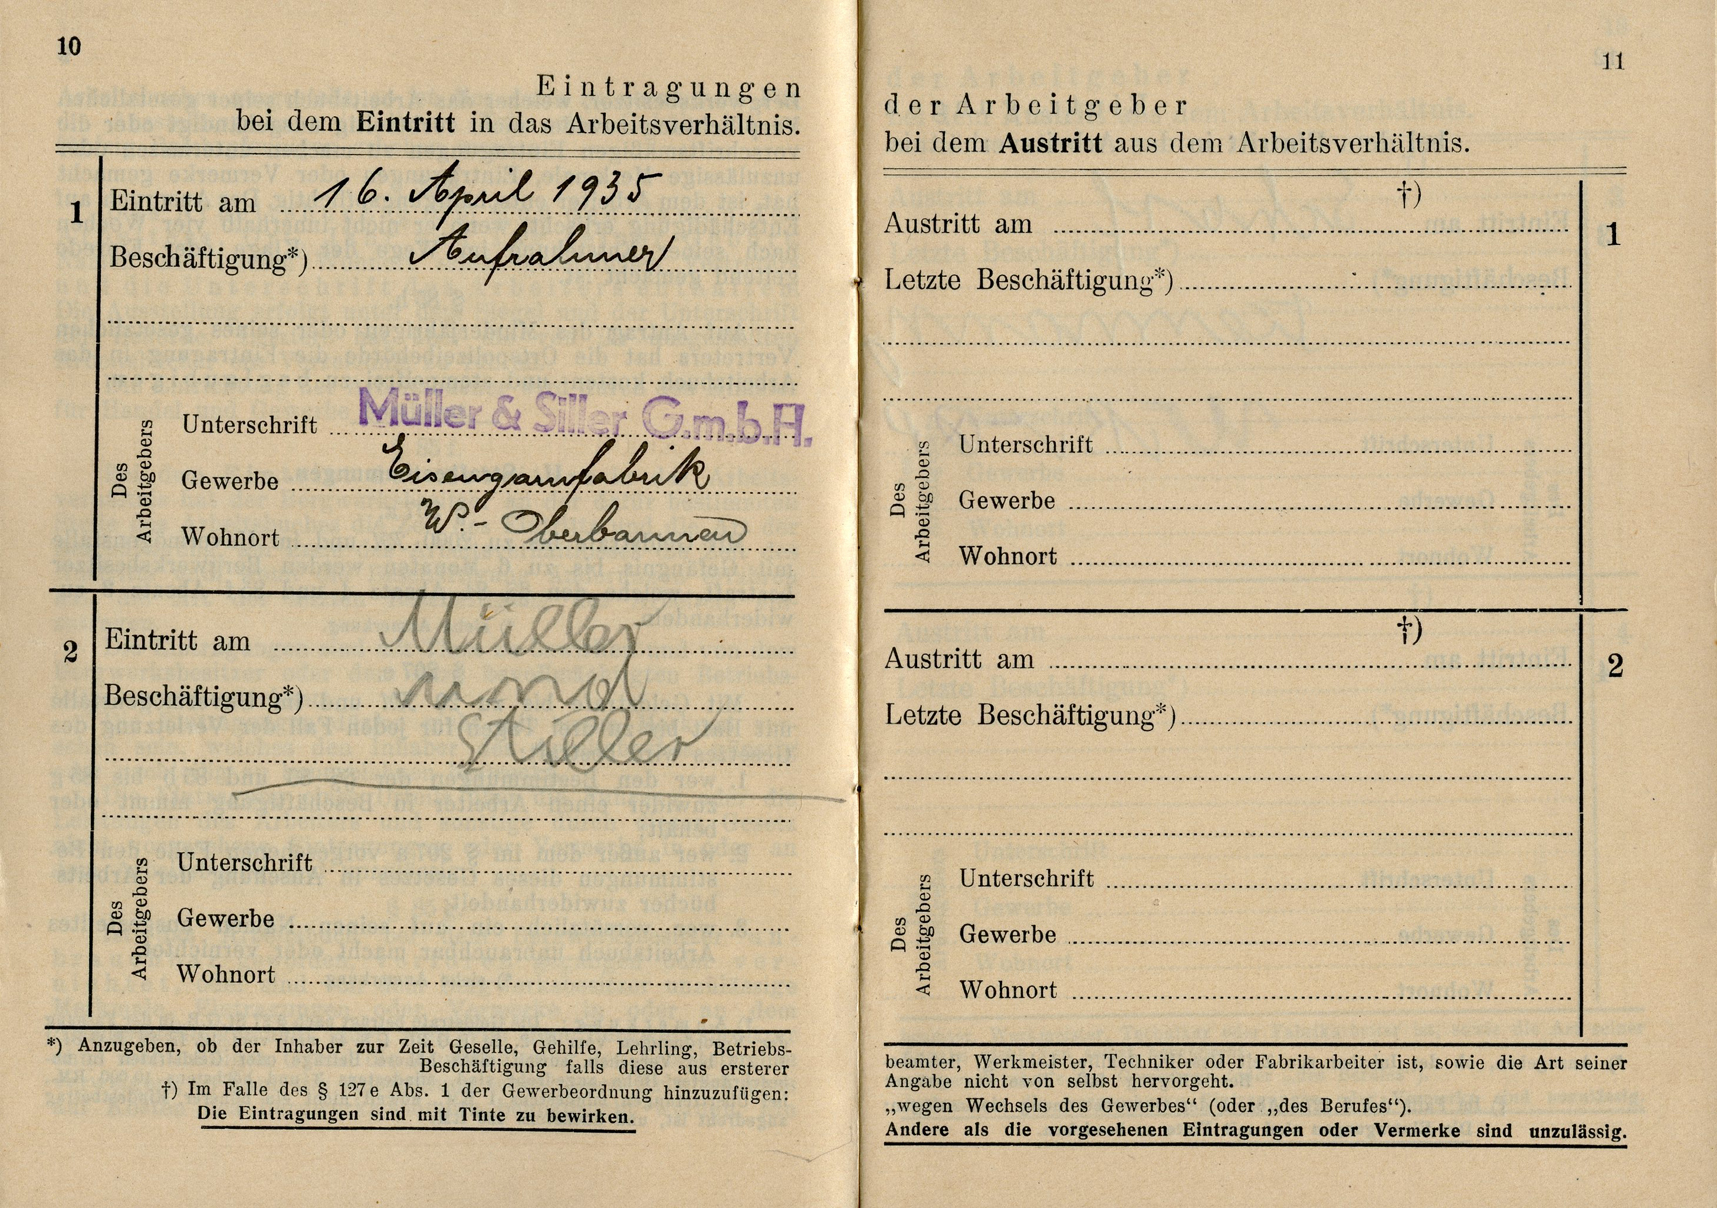 10
Eintragungen
bei dem Eintritt in das Arbeitsverhältnis.
1
Eintritt am 16. April 1935
Beschäftigung*) Aufrahmer
Des Arbeitgebers
Unterschrift Müller & Siller G.m.b.H.
Gewerbe Eisengarnfabrik
Wohnort W.-Oberbarmen
2
Eintritt am Müller
Beschäftigung*) und
Stiller
Des Arbeitgebers
Unterschrift
Gewerbe
Wohnort
*) Anzugeben, ob der Inhaber zur Zeit Geselle, Gehilfe, Lehrling, Betriebs-
Beschäftigung falls diese aus ersterer
†) Im Falle des § 127e Abs. 1 der Gewerbeordnung hinzuzufügen:
Die Eintragungen sind mit Tinte zu bewirken.
11
der Arbeitgeber
bei dem Austritt aus dem Arbeitsverhältnis.
†)
Austritt am
1
Letzte Beschäftigung*)
Des Arbeitgebers
Unterschrift
Gewerbe
Wohnort
†)
Austritt am
2
Letzte Beschäftigung*)
Des Arbeitgebers
Unterschrift
Gewerbe
Wohnort
beamter, Werkmeister, Techniker oder Fabrikarbeiter ist, sowie die Art seiner
Angabe nicht von selbst hervorgeht.
„wegen Wechsels des Gewerbes“ (oder „des Berufes“).
Andere als die vorgesehenen Eintragungen oder Vermerke sind unzulässig.